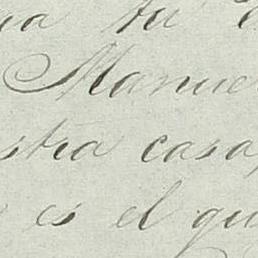 tu
Manue
stra casa,
es el qu